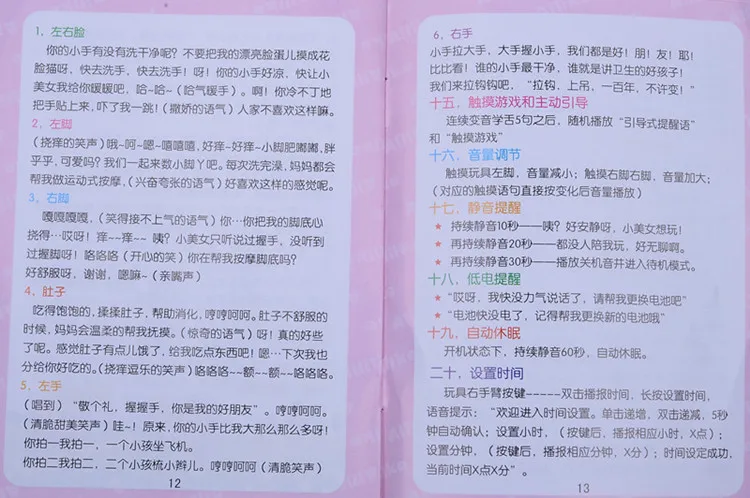 1、左右脸
你的小手有没有洗干净呢？不要把我的漂亮脸蛋儿摸成花
脸猫呀，快去洗手，快去洗手！呀！你的小手好凉，快让小
美女我给你暖暖吧，哈~哈~（哈气暖手）。啊！你冷不丁地
把手贴上来，吓了我一跳！（撒娇的语气）人家不喜欢这样嘛。
2、左脚
（挠痒的笑声）哦~呵~嗯~嘻嘻嘻，好痒~好痒~小脚肥嘟嘟，胖
乎乎，可爱吗？我们一起来数小脚丫吧。每次洗完澡，妈妈都会
帮我做运动式按摩，（兴奋夸张的语气）好喜欢这样的感觉呢。
3、右脚
嘎嘎嘎嘎，（笑得接不上气的语气）你…你把我的脚底心
挠得…哎呀！痒~~痒~~ 咦？小美女只听说过握手，没听到
过握脚呀！咯咯咯（开心的笑）你在帮我按摩脚底吗？
好舒服呀，谢谢，嗯嘛~（亲嘴声）
4、肚子
吃得饱饱的，揉揉肚子，帮助消化，哼哼呵呵。肚子不舒服的
时候，妈妈会温柔的帮我抚摸。（惊奇的语气）呀！真的好些
了呢。感觉肚子有点儿饿了，给我吃点东西吧！嗯…下次我也
分给你好吃的。（挠痒逗乐的笑声）咯咯咯~~额~~额~~咯咯咯。
5、左手
（唱到）“敬个礼，握握手，你是我的好朋友”。哼哼呵呵。
（清脆甜美笑声）哇~！原来，你的小手比我大那么那么多呀！
你拍一我拍一，一个小孩坐飞机。
你拍二我拍二，二个小孩梳小辫儿。哼哼呵呵（清脆笑声）
12
6、右手
小手拉大手，大手握小手，我们都是好！朋！友！耶！
比比看！谁的小手最干净，谁就是讲卫生的好孩子！
我们来拉钩钩吧，“拉钩，上吊，一百年，不许变！”
十五、触摸游戏和主动引导
连续变音学舌5句之后，随机播放“引导式提醒语”
和“触摸游戏”
十六、音量调节
触摸玩具左脚，音量减小；触摸右脚右脚，音量加大；
（对应的触摸语句直接按变化后音量播放）
十七、静音提醒
★ 持续静音10秒——咦？好安静呀，小美女想玩！
★ 再持续静音20秒——都没人陪我玩，好无聊啊。
★ 再持续静音30秒——播放关机音并进入待机模式。
十八、低电提醒
★“哎呀，我快没力气说话了，请帮我更换电池吧”
★“电池快没电了，记得帮我更换新的电池哦”
十九、自动休眠
开机状态下，持续静音60秒，自动休眠。
二十、设置时间
玩具右手臂按键-----双击播报时间，长按设置时间，
语音提示：“欢迎进入时间设置。单击递增，双击递减，5秒
钟自动确认；设置小时，（按键后，播报相应小时，X点）；
设置分钟，（按键后，播报相应分钟，X分）；时间设定成功，
当前时间X点X分”。
13